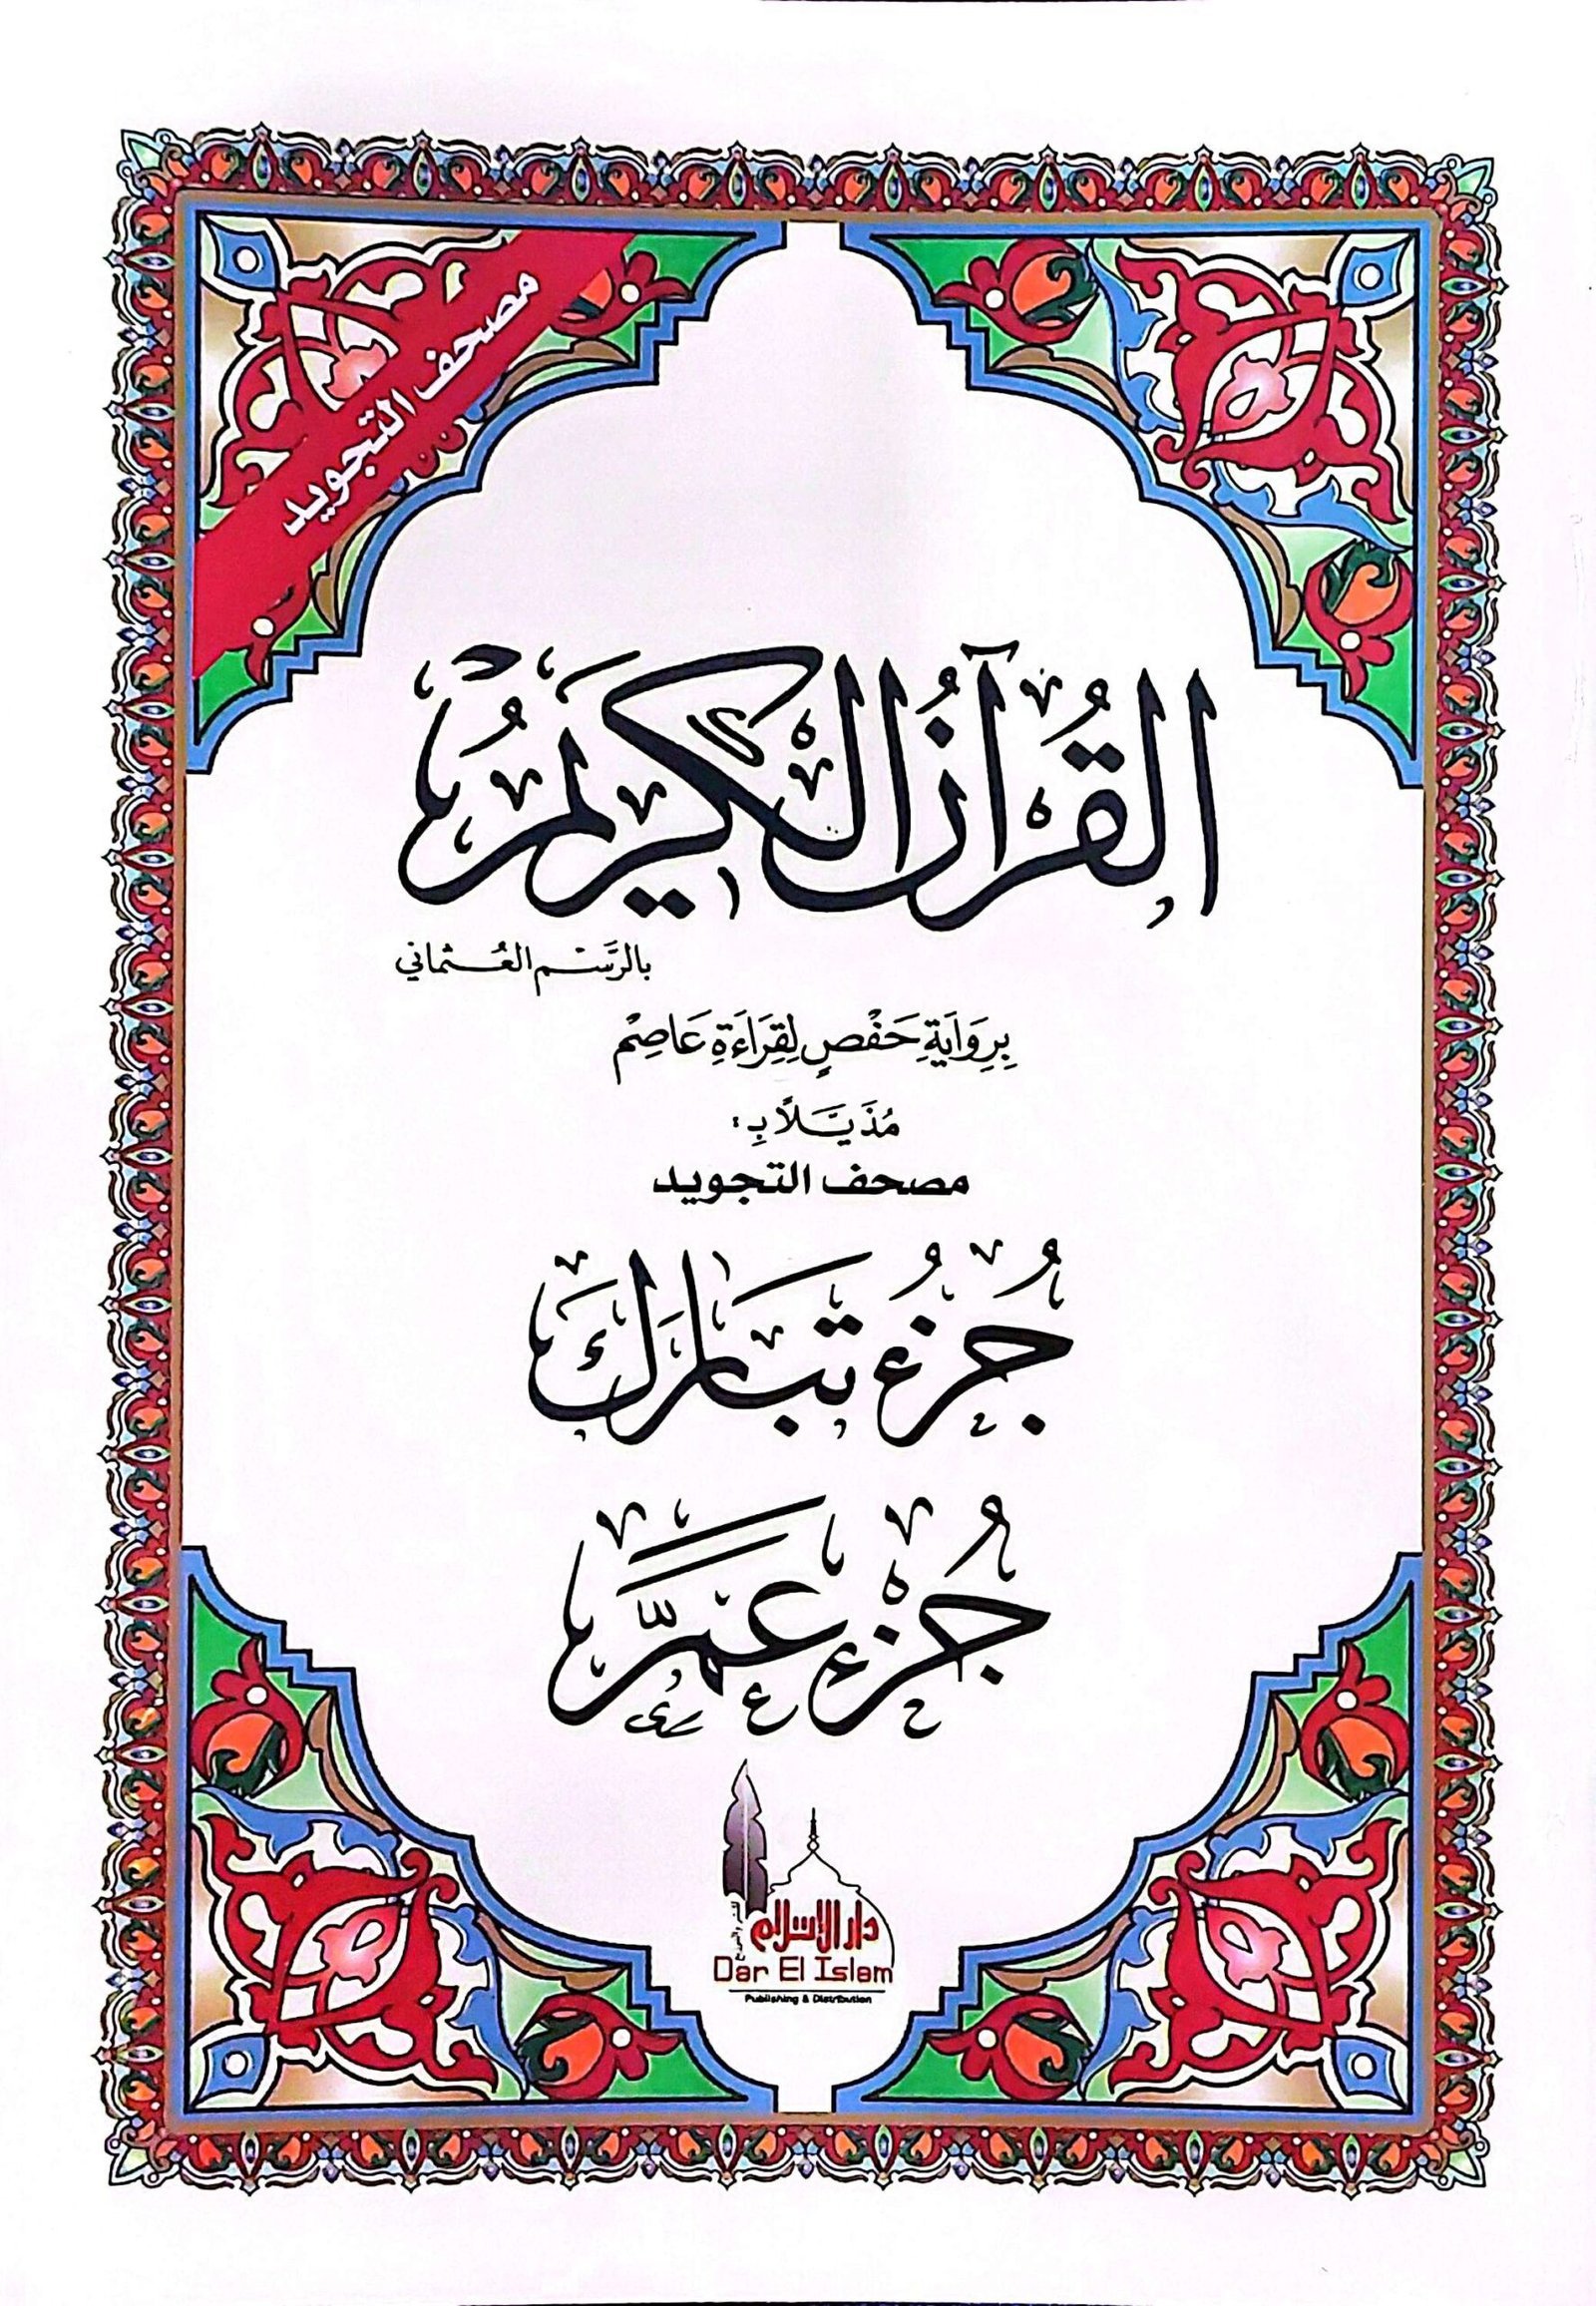 مصحف التجويد
القُرْآنُ الْكَرِيمُ
بالرَّسْم العُثماني
بِرِوَايَةِ حَفْصٍ لِقِرَاءَةِ عَاصِمْ
مُذَيَّلًا بِ:
مصحف التجويد
جُزءُ تَبَارَكَ
جُزْء عَمَّ
دار الإسلام
للنشر والتوزيع
Dar El Islam
Publishing & Distribution